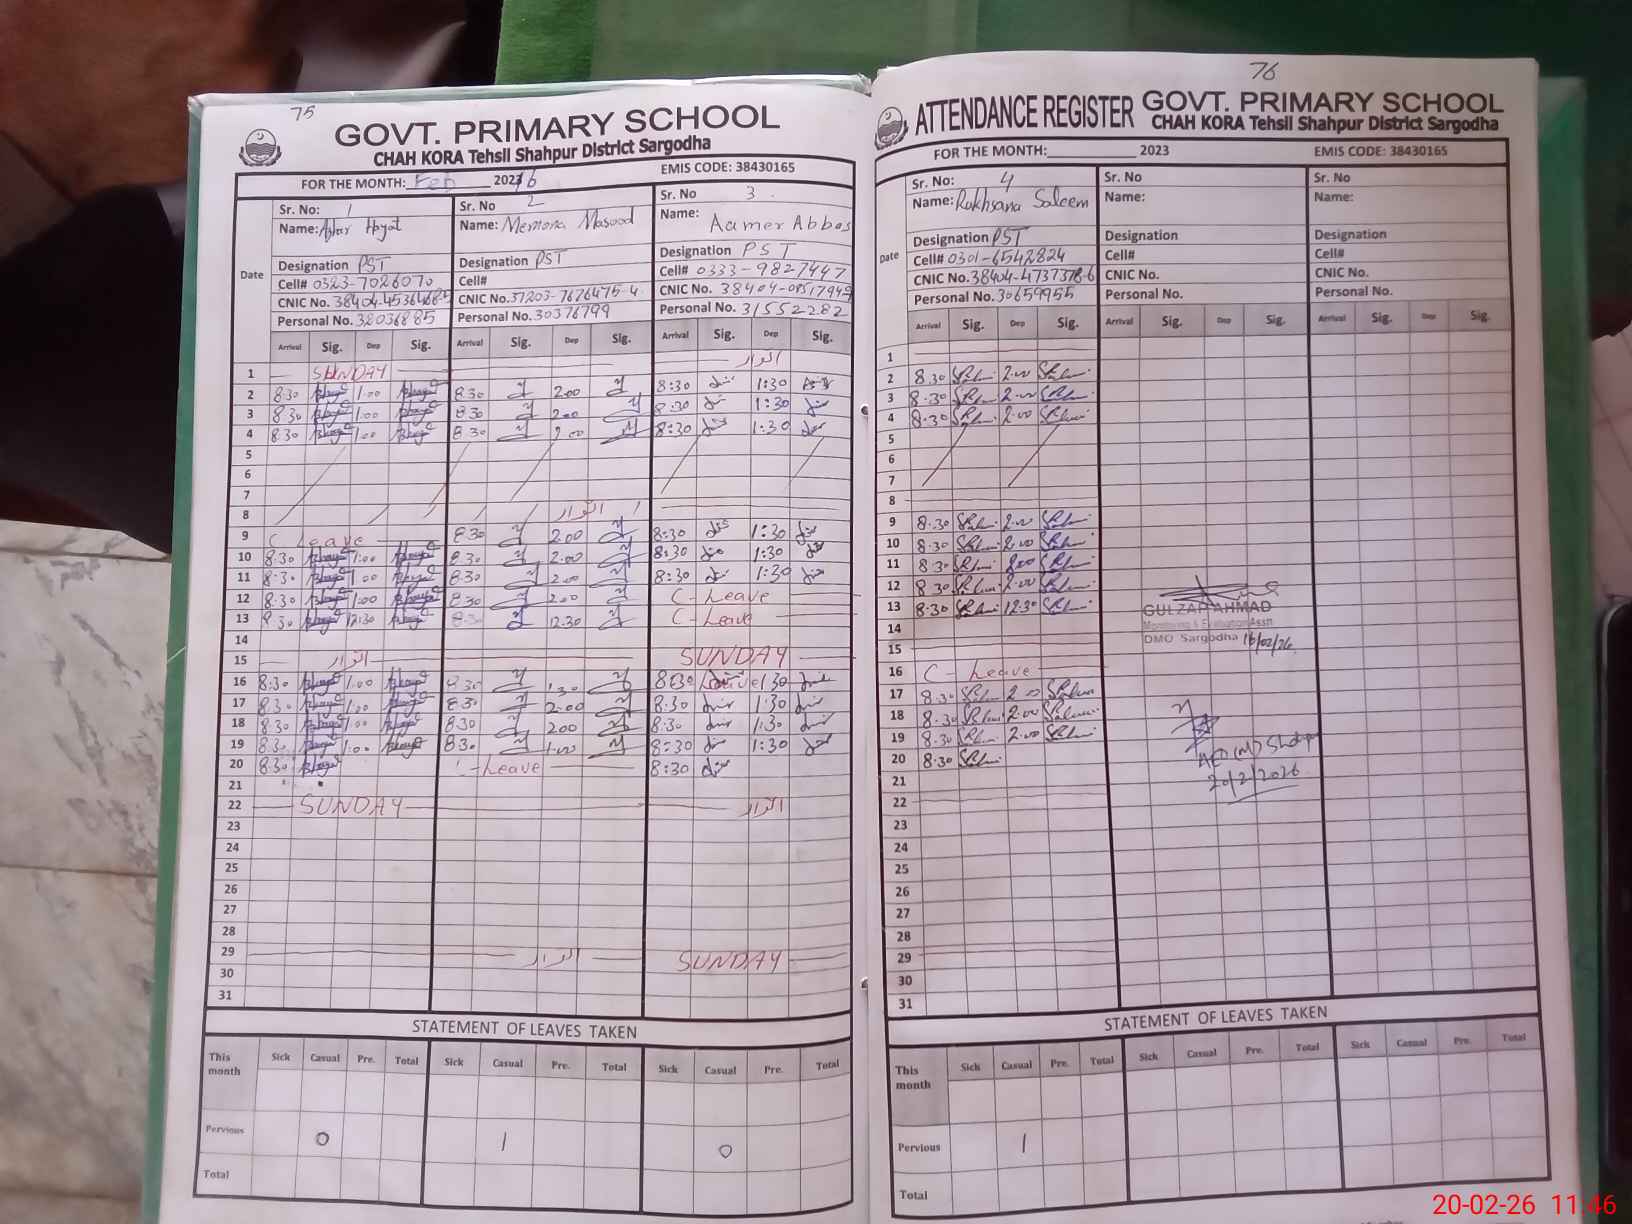 75
GOVT. PRIMARY SCHOOL
CHAH KORA Tehsil Shahpur District Sargodha
FOR THE MONTH: Feb 2026
EMIS CODE: 38430165
Date
Sr. No: 1
Name: Azhar Hayat
Designation PST
Cell# 0323-7026070
CNIC No.
Personal No. 32036885
Arrival Sig. Dep Sig.
Sr. No 2
Name: Memona Masood
Designation PST
Cell#
CNIC No. 37203-7676475-4
Personal No. 30376799
Arrival Sig. Dep Sig.
Sr. No 3
Name: Aamer Abbas
Designation PST
Cell# 0333-9827447
CNIC No.
Personal No. 31552282
Arrival Sig. Dep Sig.
1 SUNDAY اتوار
2 8:30 1:00 8:30 2:00 8:30 1:30
3 8:30 1:00 8:30 2:00 8:30 1:30
4 8:30 1:00 8:30 2:00 8:30 1:30
5
6
7
8 اتوار
9 C Leave 8:30 2:00 8:30 1:30
10 8:30 1:00 8:30 2:00 8:30 1:30
11 8:30 1:00 8:30 2:00 8:30 1:30
12 8:30 1:00 8:30 2:00 C-Leave
13 8:30 12:30 8:30 12:30 C-Leave
14
15 اتوار SUNDAY
16 8:30 1:00 8:30 1:30 8:30 Leave 1:30
17 8:30 1:00 8:30 2:00 8:30 1:30
18 8:30 1:00 8:30 2:00 8:30 1:30
19 8:30 1:00 8:30 1:00 8:30 1:30
20 8:30 C-Leave 8:30
21
22 SUNDAY اتوار
23
24
25
26
27
28
29 اتوار SUNDAY
30
31
STATEMENT OF LEAVES TAKEN
This month Sick Casual Pre. Total Sick Casual Pre. Total Sick Casual Pre. Total
Pervious 0 1 0
Total
76
ATTENDANCE REGISTER GOVT. PRIMARY SCHOOL
CHAH KORA Tehsil Shahpur District Sargodha
FOR THE MONTH:____________ 2023
EMIS CODE: 38430165
Date
Sr. No: 4
Name: Rukhsana Saleem
Designation PST
Cell# 0301-6542824
CNIC No. 38404-4737378-6
Personal No. 30659955
Arrival Sig. Dep Sig.
Sr. No
Name:
Designation
Cell#
CNIC No.
Personal No.
Arrival Sig. Dep Sig.
Sr. No
Name:
Designation
Cell#
CNIC No.
Personal No.
Arrival Sig. Dep Sig.
1
2 8:30 2:00
3 8:30 2:00
4 8:30 2:00
5
6
7
8
9 8:30 2:00
10 8:30 2:00
11 8:30 2:00
12 8:30 2:00
13 8:30 12:30
GULZAR AHMAD
Monitoring & Evaluation Asstt
DMO Sargodha 16/02/26
14
15
16 C- Leave
17 8:30 2:00
18 8:30 2:00
19 8:30 2:00
20 8:30
AEO (M) Shahpur
20/2/2026
21
22
23
24
25
26
27
28
29
30
31
STATEMENT OF LEAVES TAKEN
This month Sick Casual Pre. Total Sick Casual Pre. Total Sick Casual Pre. Total
Pervious 1
Total
20-02-26 11:46